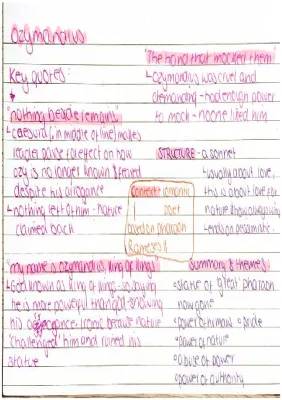 Ozymandias
Key quotes:
"nothing beside remains"
↳ caesura (in middle of line) makes
reader pause for effect on how
ozy is no longer known & feared
despite his arrogance
↳ nothing left of him - nature
claimed back
"my name is ozymandias, king of kings"
↳ God known as king of kings - so saying
he is more powerful than god - showing
his arrogance. Ironic because nature
'challenged' him and ruined his
statue
"The hand that mocked them"
↳ ozymandias was cruel and
demanding - had enough power
to mock - no one liked him
STRUCTURE - a sonnet
↳ usually about love,
this is about love for
nature & how always wins
↳ ends on pessimistic
Context: romantic
poet
based on pharaoh
Rameses II
Summary & themes
• statue of 'great' pharaoh
now gone
• power of humans & pride
• power of nature
• abuse of power
• power of authority